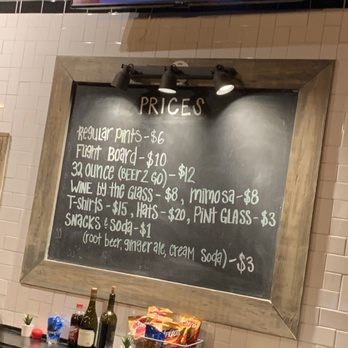 PRICES
Regular Pints - $6
Flight Board - $10
32 ounce (Beer 2 Go) - $12
Wine by the Glass - $8, Mimosa - $8
T-shirts - $15, Hats - $20, Pint Glass - $3
Snacks & Soda - $1
(root beer, ginger ale, cream soda) - $3